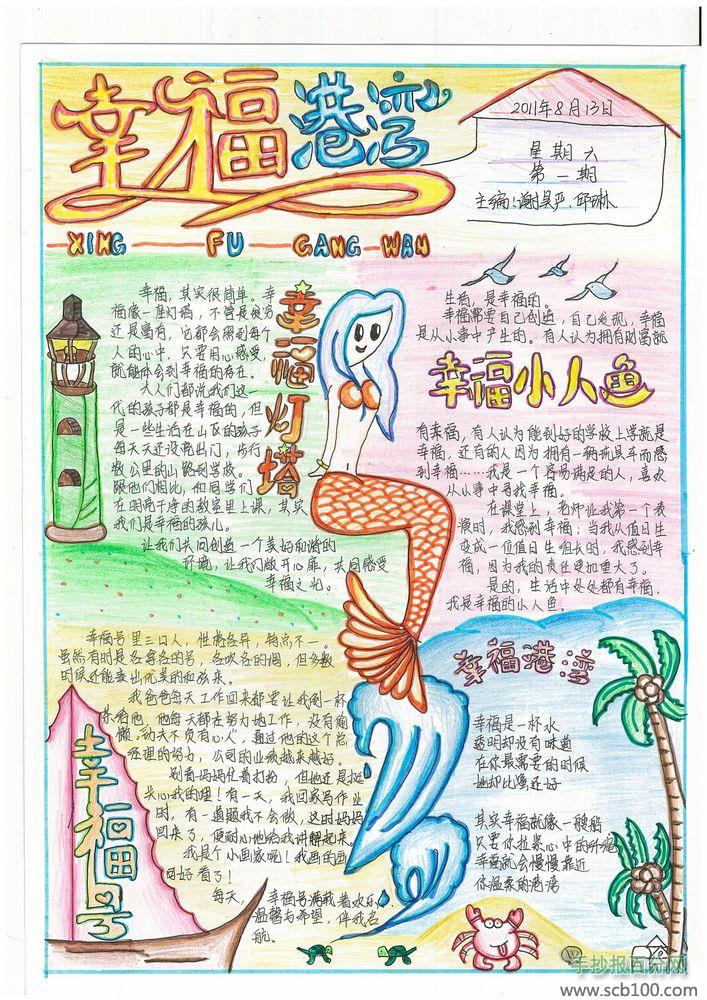 幸福港湾
XING FU GANG WAN
2011年8月13日
星期六
第一期
主编:谢昊严.邱琳
幸福灯塔
幸福,其实很简单。幸
福像一座灯塔,不管是贫穷
还是富有,它都会照到每个
人的心中,只要用心感受
就能体会到幸福的存在。
大人们都说我们这一
代的孩子都是幸福的,但
是一些生活在山区的孩子
每天天还没亮出门,步行
数公里的山路到学校。
跟他们相比,和同学们
在明亮干净的教室里上课,其实
我们是幸福的孩儿。
让我们共同创造一个美好和谐的
环境,让我们敞开心扉,共同感受
幸福之光。
生活,是幸福的。
幸福需要自己创造,自己发现,幸福
是从小事中产生的。有人认为拥有财富就
幸福小人鱼
有幸福,有人认为能到好的学校上学就是
幸福,还有的人因为拥有一辆玩具车而感
到幸福……我是一个容易满足的人,喜欢
从小事中寻找幸福。
在课堂上,老师让我第一个表
演时,我感到幸福;当我从值日生
变成一位值日生组长时,我感到幸
福,因为我的责任更加重大了。
是的,生活中处处都有幸福,
我是幸福的小人鱼。
幸福号
幸福号里三口人,性格各异,特点不一。
虽然有时是各拿各的号,各吹各的调,但多数
时候还能奏出优美的和弦来。
我爸爸每天工作回来都要让我倒一杯
茶给他,他每天都在努力地工作,没有偷
懒。功夫不负有心人,通过他的这个总
经理的努力,公司的业绩越来越好。
别看妈妈忙着打扮,但她还是挺
关心我的哩!有一天,我回家写作业
时,有一道题我不会做,这时妈妈
回来了,便耐心地给我讲解起来。
我是个小画家呢!我画的画
可好看了!
每天,幸福号满载着欢乐、
温馨与希望,伴我启
航。
幸福港湾
幸福是一杯水
透明却没有味道
在你最需要的时候
她却比蜜还好
其实幸福就像一艘船
只要你拉紧心中的
幸福就会慢慢靠近
你温柔的港湾
手抄报百分网
www.scb100.com